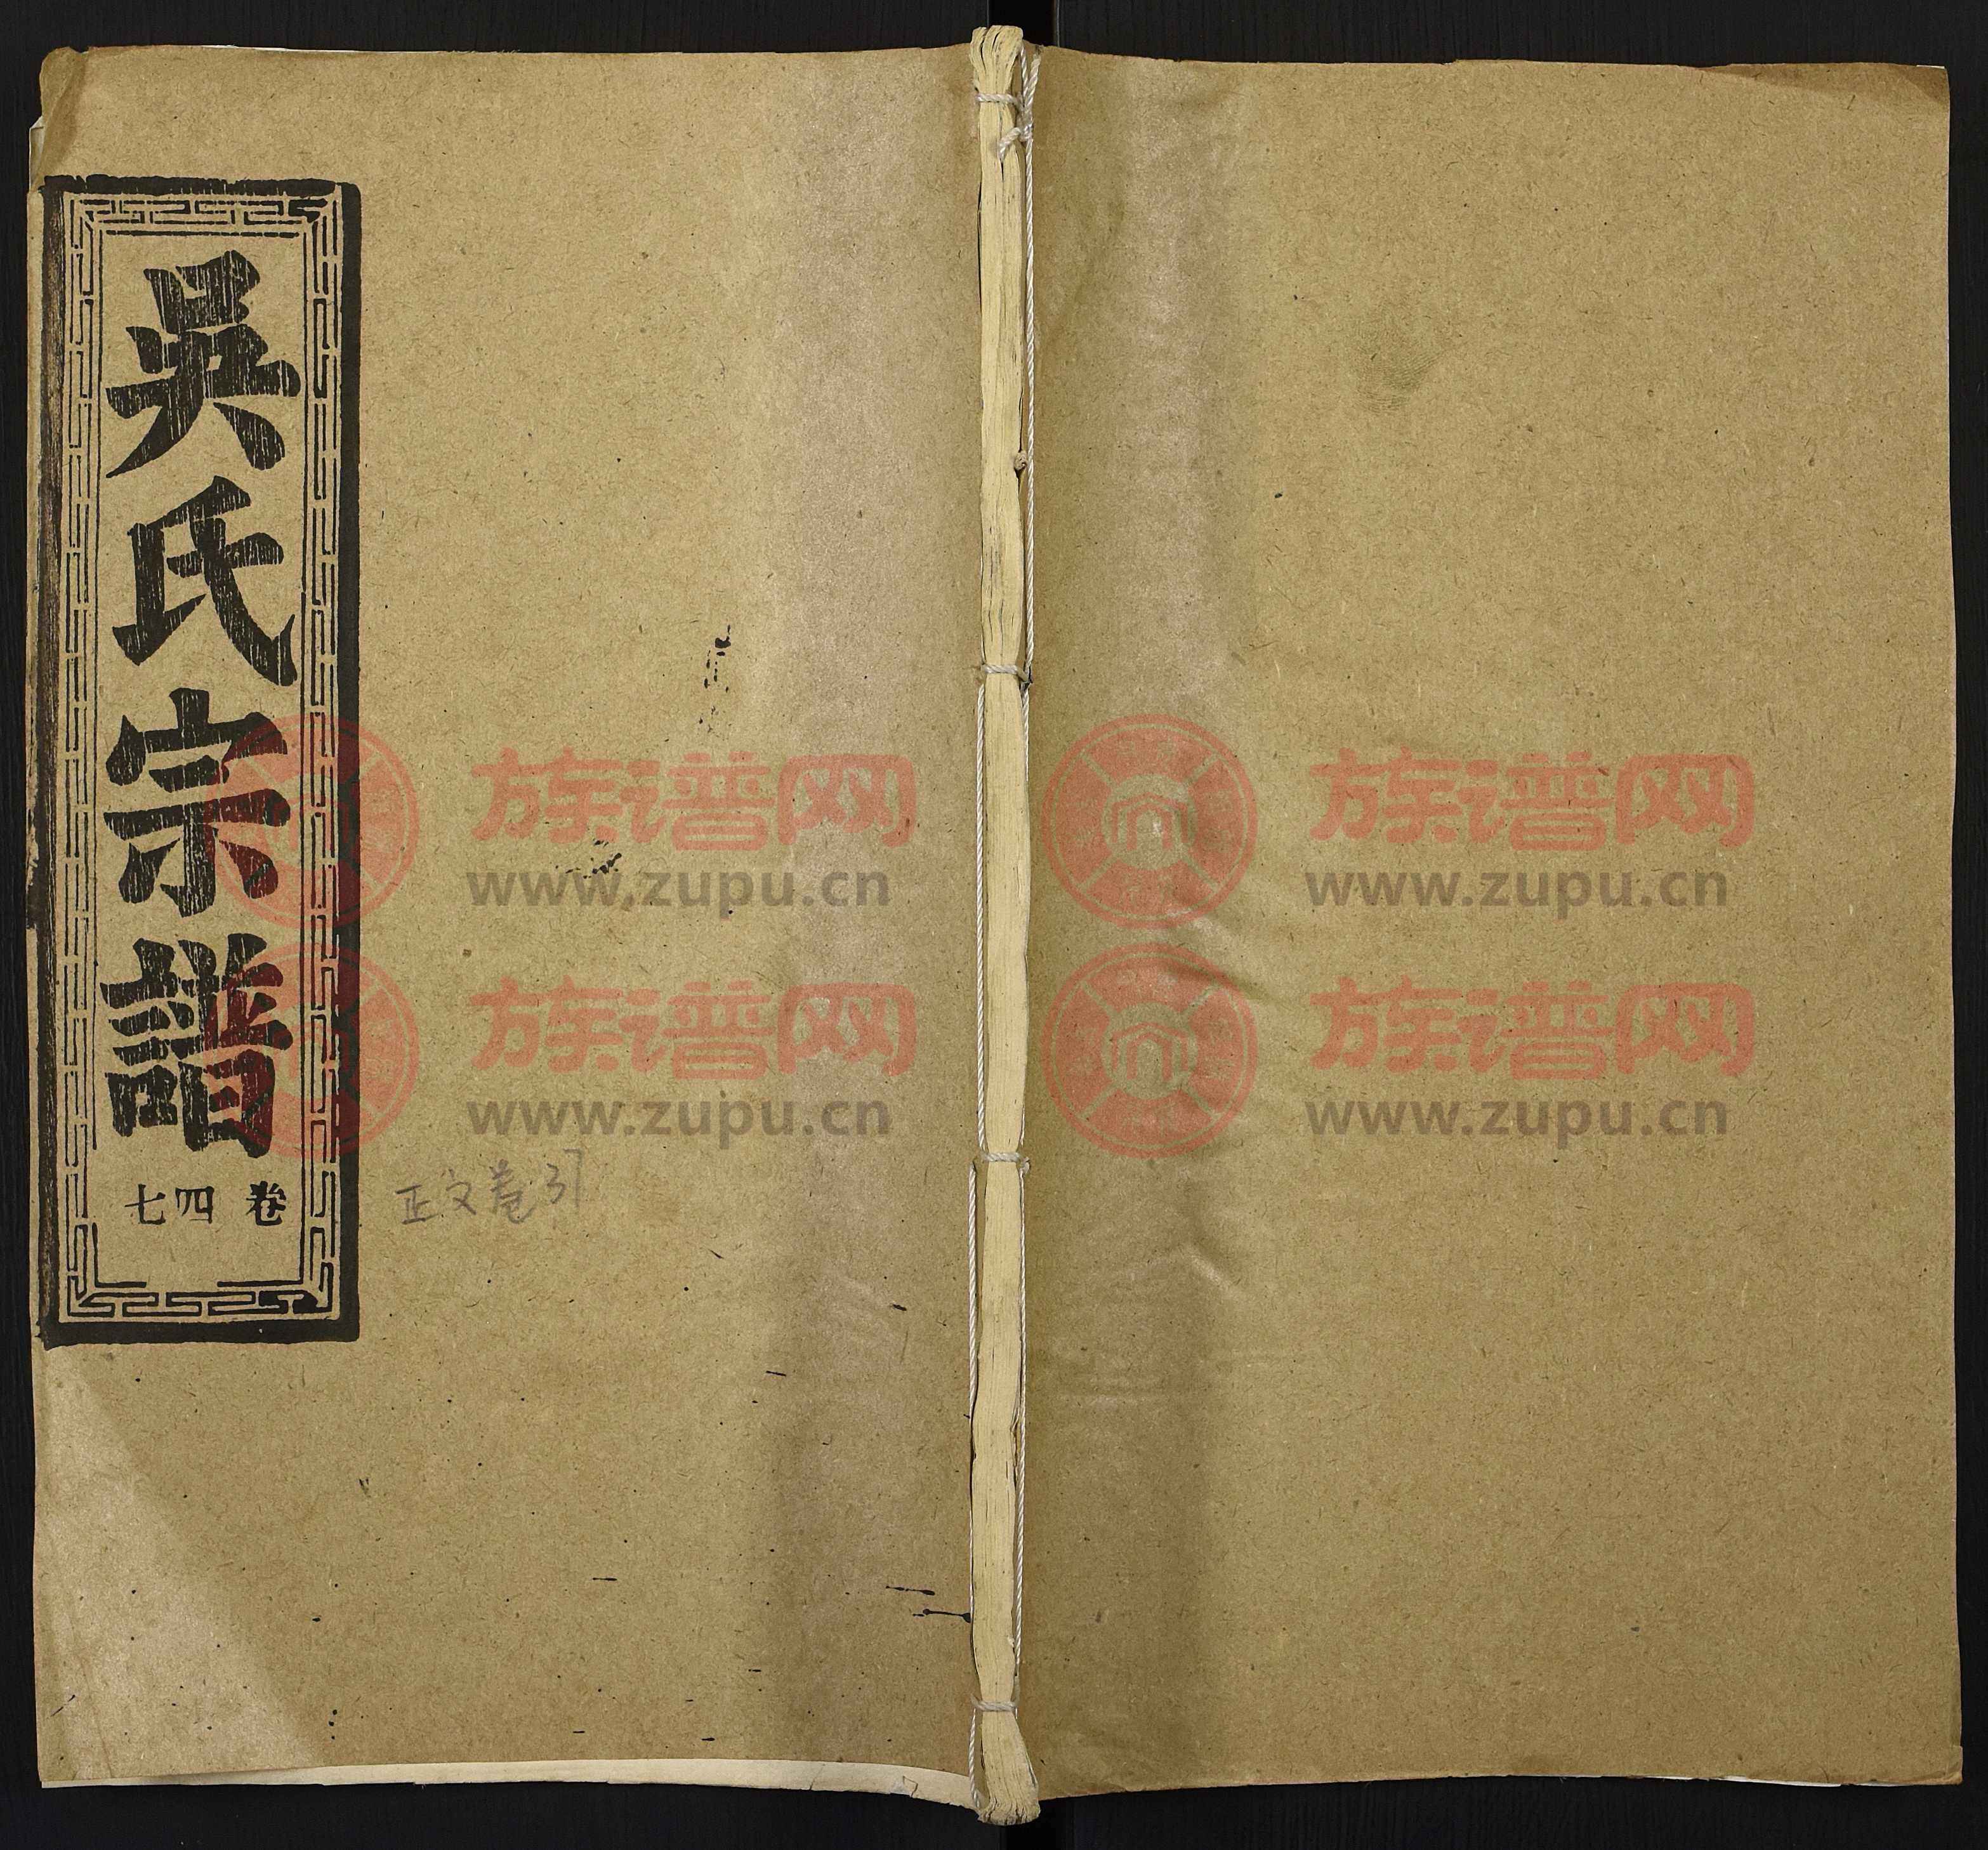 吳氏宗譜
卷 四七
正文卷37
族谱网
www.zupu.cn
族谱网
www.zupu.cn
族谱网
www.zupu.cn
族谱网
www.zupu.cn